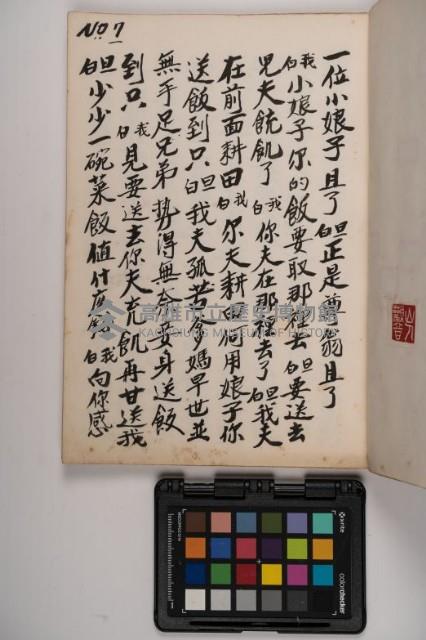 NO 7
一位小娘子且了 旦白 正是尊翁且了
我白 小娘子尔的飯要取那裡去 旦白 要送去
児夫饒飢了 我白 你夫在那裡去了 旦白 我夫
在前面耕田 我白 尔夫耕田何用娘子你
送飯到只 旦白 我夫孤苦爹媽早世並
無手足兄弟勢得無奈妾身送飯
到只 我白 見要送去你夫充飢再甘送我
旦白 少少一碗菜飯値什庅 我白 向你感
高雄市立歷史博物館
KAOHSIUNG MUSEUM OF HISTORY
x-rite
colorchecker